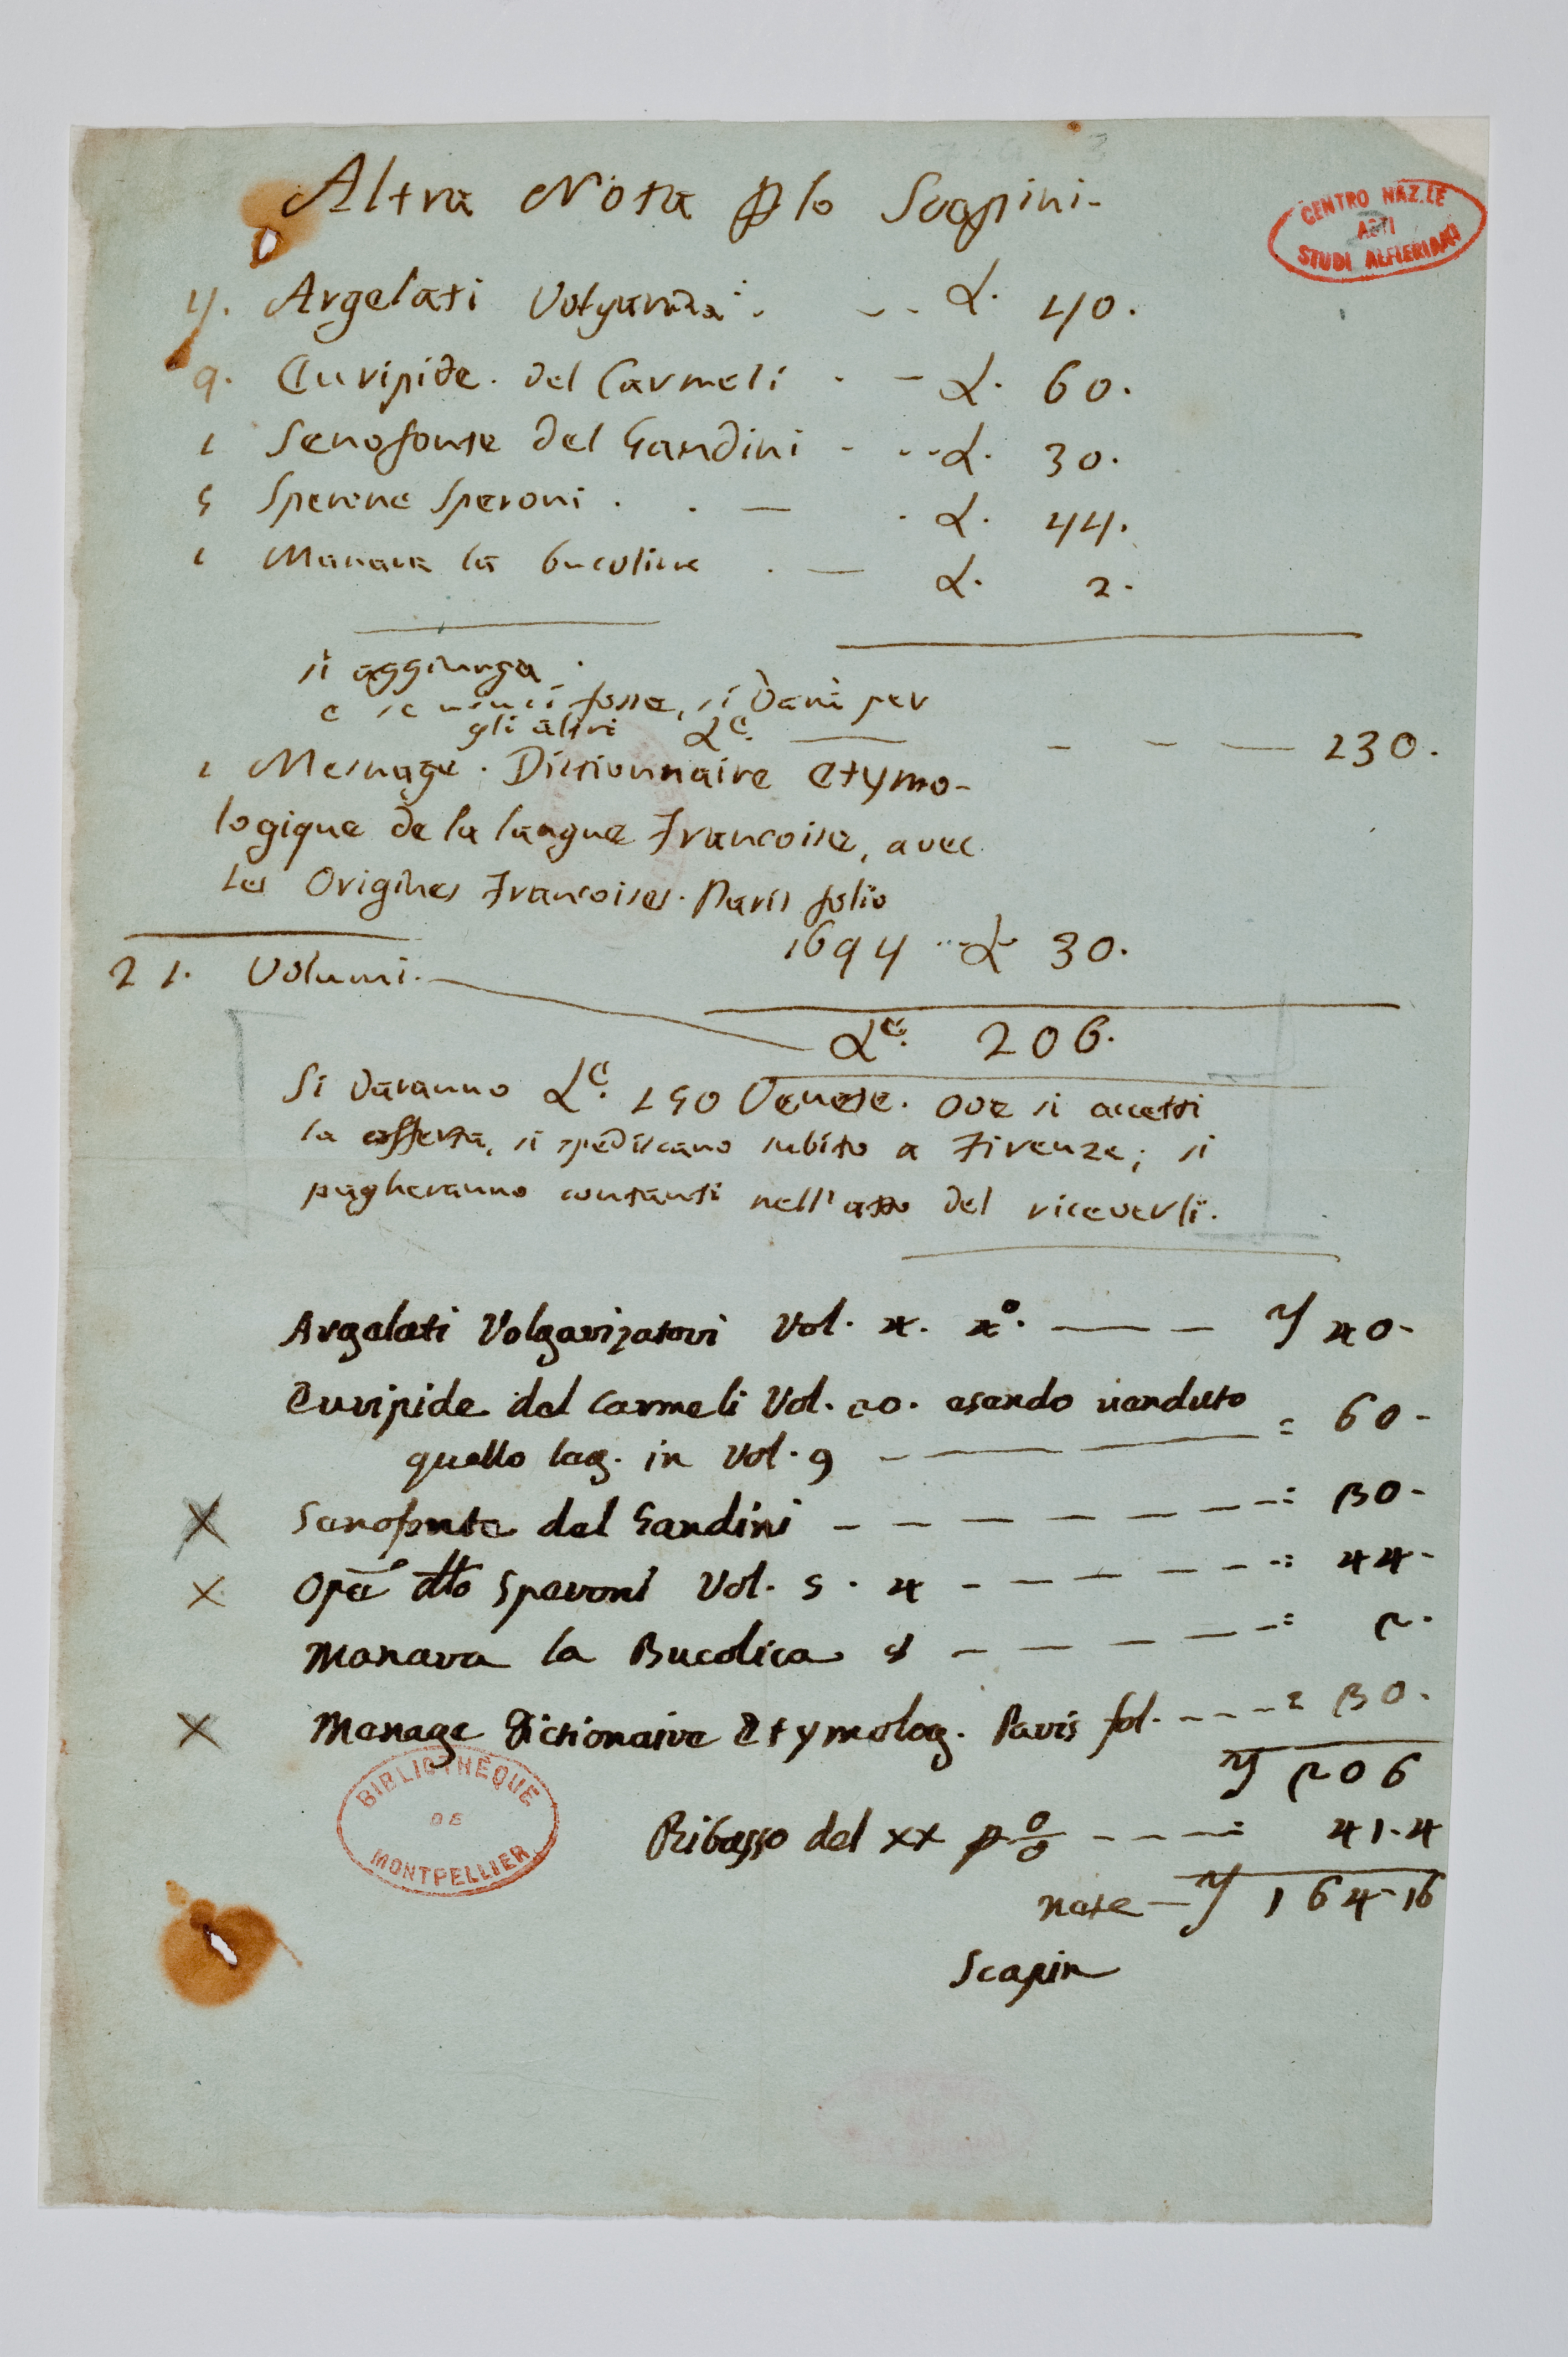 Altra Nota p lo Scapini.
CENTRO NAZ.LE
ASTI
STUDI ALFIERIANI
4. Argelati Volgarizza: . -- L. 40.
9. Euripide. del Carmeli . - L. 60.
1 Senofonte del Gandini - --L. 30.
5 Sperone Speroni . . — . L. 44.
1 Manara la bucolica . — L. 2.
si aggiunga.
e se non ci fosse, si darà per
gli altri Le. — - - — 230.
1 Mesnage. Dictionnaire etymo-
logique de la langue Francoise, avec
les Origines Francoises. Paris folio
1694 ...L 30.
21. Volumi.
Le. 206.
Si daranno Le. 150 Venete. ove si accetti
la offerta, si spediscano subito a Firenze; si
pagheranno contanti nell'atto del riceverli.
Argelati Volgarizatori Vol. 4. 4o. — — 40-
Euripide del Carmeli Vol. 20. esendo venduto
quello leg. in Vol. 9 — — — = 60-
X Senofonte del Gandini - - - - - - -= 30-
X Opē dllo Speroni Vol. 5. 4 - - - - - -= 44-
Manara la Bucolica 8 - - - - -= 2.
X Menage Dictionaire Etymolog. Paris fol. ----= 30.
206
BIBLIOTHÈQUE
DE
MONTPELLIER
Ribasso del xx p o/o - - - -= 41.4
nete — 164-16
Scapin